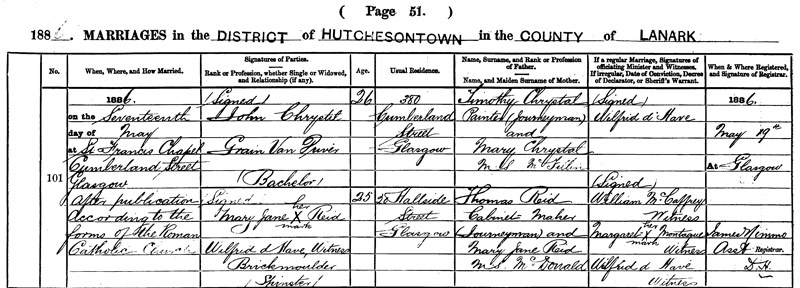 ( Page 51. )
1886. MARRIAGES in the DISTRICT of HUTCHESONTOWN in the COUNTY of LANARK
No.
When, Where, and How Married.
Signatures of Parties.
Rank or Profession, whether Single or Widowed, and Relationship (if any).
Age.
Usual Residence.
Name, Surname, and Rank or Profession of Father.
Name, and Maiden Surname of Mother.
If a regular Marriage, Signatures of officiating Minister and Witnesses.
If irregular, Date of Conviction, Decree of Declarator, or Sheriff's Warrant.
When & Where Registered, and Signature of Registrar.
101
1886.
on the Seventeenth
day of May
at St Francis Chapel
Cumberland Street
Glasgow
After publication
according to the
forms of the Roman
Catholic Church
(Signed)
John Chrystal
Grain Van Driver
(Bachelor)
Signed
Mary Jane her X mark Reid
Wilfrid d'Have, Witness
Brickmoulder
(Spinster)
26
25
380
Cumberland
Street
Glasgow
50 Hallside
Street
Glasgow
Timothy Chrystal
Painter (Journeyman)
and
Mary Chrystal
M.S.
Thomas Reid
Cabinet Maker
(Journeyman) and
Mary Jane Reid
M.S. McDonald
(Signed)
Wilfrid d'Have
(Signed)
William McCaffrey
Witness
Margaret her X mark Montague
Witness
Wilfrid d'Have
Witness
1886.
May 19th
At Glasgow
James Nimmo
Asst Registrar.
D.H.